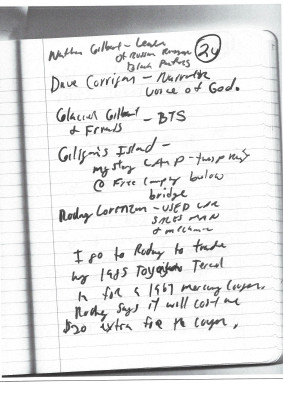 Nathan Gilbert - Leader
of Russian Revenge
Black Panthers
24
Dave Corrigan - Narrator
Voice of God.
Glacial Gilbert
& Friends - BTS
Giligan's Island -
mystery camp
@ Free camp below
bridge
Rodny - USED car
SALES MAN
& mechanic
I go to Rodny to trade
my 1985 Toyota Tercel
in for a 1967 mercury Couger.
Rodny says it will cost me
$20 extra for the couger.